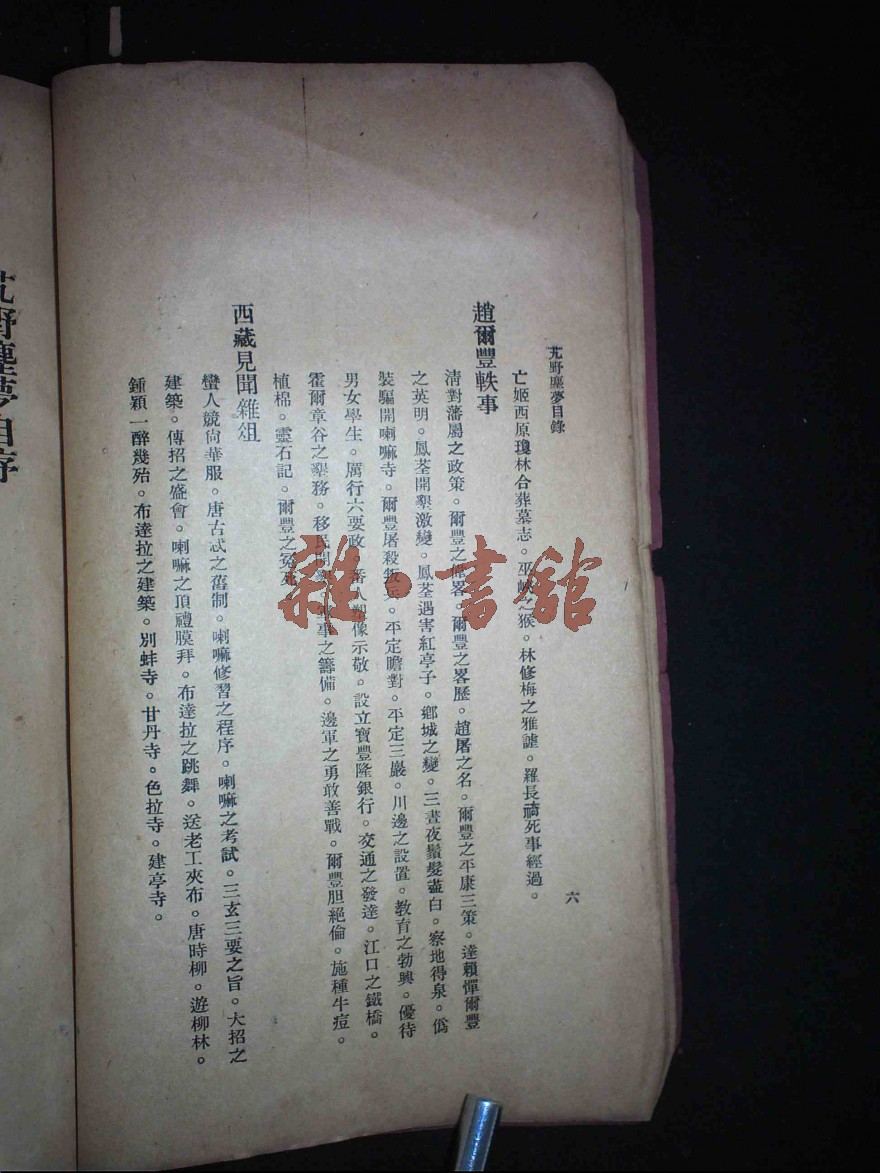 艽野塵夢目錄
六
亡姬西原瓊林合葬墓志。巫峽之猴。林修梅之雅謔。羅長裿死事經過。
趙爾豐軼事
清對藩屬之政策。爾豐之偉畧。爾豐之畧歷。趙屠之名。爾豐之平康三策。達賴憚爾豐
之英明。鳳荃開墾激變。鳳荃遇害紅亭子。鄉城之變。三晝夜鬚髮盡白。察地得泉。僞
裝驅開喇嘛寺。爾豐屠殺叛兵。平定瞻對。平定三巖。川邊之設置。教育之勃興。優待
男女學生。厲行六要政。番人塑像示敬。設立寶豐隆銀行。交通之發達。江口之鐵橋。
霍爾章谷之墾務。移民開墾。軍事之籌備。邊軍之勇敢善戰。爾豐胆絕倫。施種牛痘。
植棉。靈石記。爾豐之冤死
西藏見聞雜俎
蠻人競尙華服。唐古忒之舊制。喇嘛修習之程序。喇嘛之考試。三玄三要之旨。大招之
建築。傳招之盛會。喇嘛之頂禮膜拜。布達拉之跳舞。送老工夾布。唐時柳。遊柳林。
鍾穎一醉幾殆。布達拉之建築。別蚌寺。甘丹寺。色拉寺。建亭寺。
艽野塵夢自序
雜·書舘